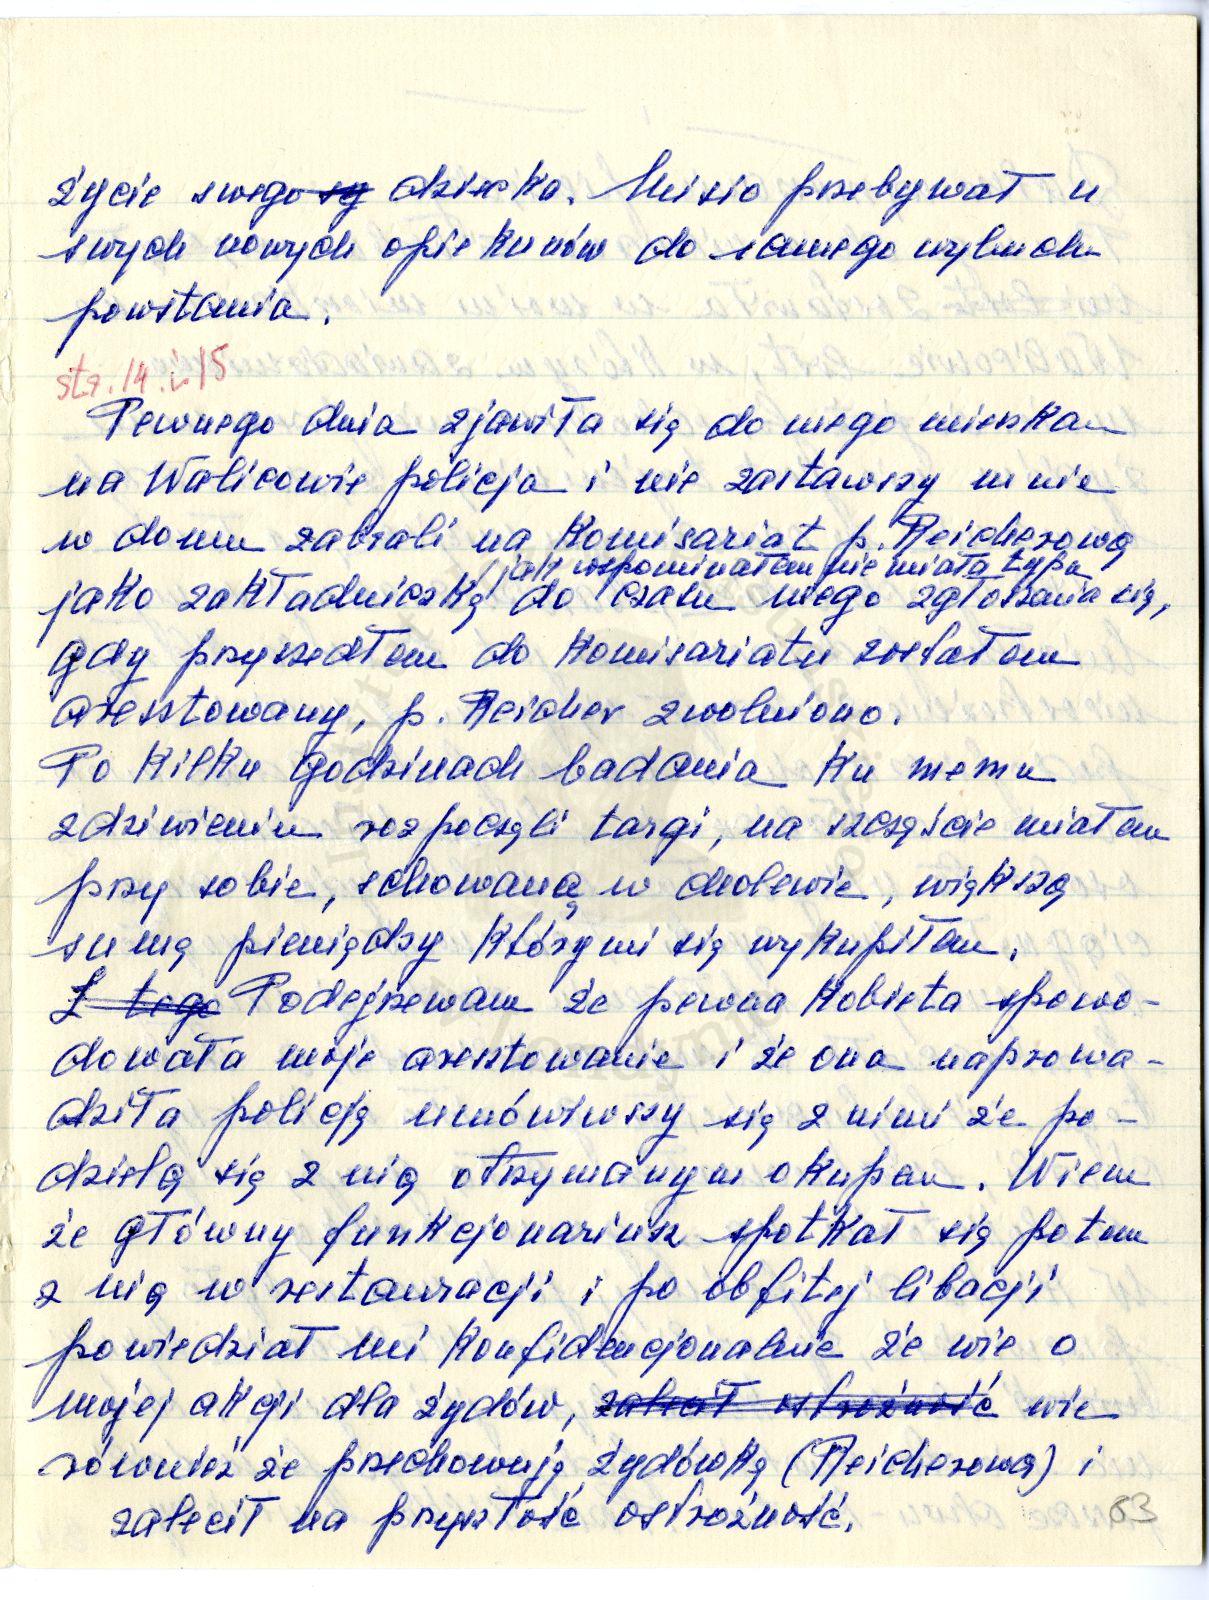 życie swego sy dziecka. Misio przebywał u
swych nowych opiekunów do samego wybuchu
powstania.
str. 14 i 15
Pewnego dnia zjawiła się do mego mieszkan
na Walicowie policja i nie zastawszy mnie
w domu zabrali na komisariat p. Reicherową
(jak wspominałem nie miała typu
jako zakładniczkę do czasu mego zgłoszenia się,
gdy przyszedłem do komisariatu zostałem
aresztowany, p. Reicher zwolniono.
Po kilku godzinach badania ku memu
zdziwieniu rozpoczęli targi, na szczęście miałem
przy sobie, schowaną w cholewie, większą
sumę pieniędzy którymi się wykupiłem.
Z tego Podejrzewam że pewna kobieta spowo-
dowała moje aresztowanie i że ona naprowa-
dziła policję umówiwszy się z nimi że po-
dzielą się z nią otrzymanym okupem. Wiem
że główny funkcjonariusz spotkał się potem
z nią w restauracji i po obfitej libacji
powiedział mi konfidencjonalnie że wie o
mojej akcji dla żydów, zalecił ostrożność wie
również że przechowuję żydówkę (Reicherową) i
zalecił na przyszłość ostrożność.
63